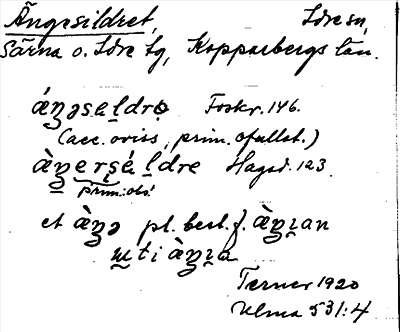 Ängesildret, Idre sn,
Särna o. Idre tg, Kopparbergs län.
áŋəsəldrə Foskr. 146.
(acc. oviss, prim. ofullst.)
àŋerşéldre Hagstr. 123
prim: obs!
et àŋə pl. best. f. àŋian
uti àŋia
Terner 1920
Ulma 531:4